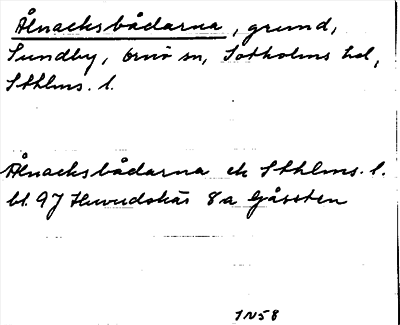 Ålnacksbådarna, grund,
Sundby, Ornö sn, Sotholms hd,
Sthlms. l.
Ålnacksbådarna ek Sthlms. l.
bl. 97 Huvudskär 8a Gåssten
1958